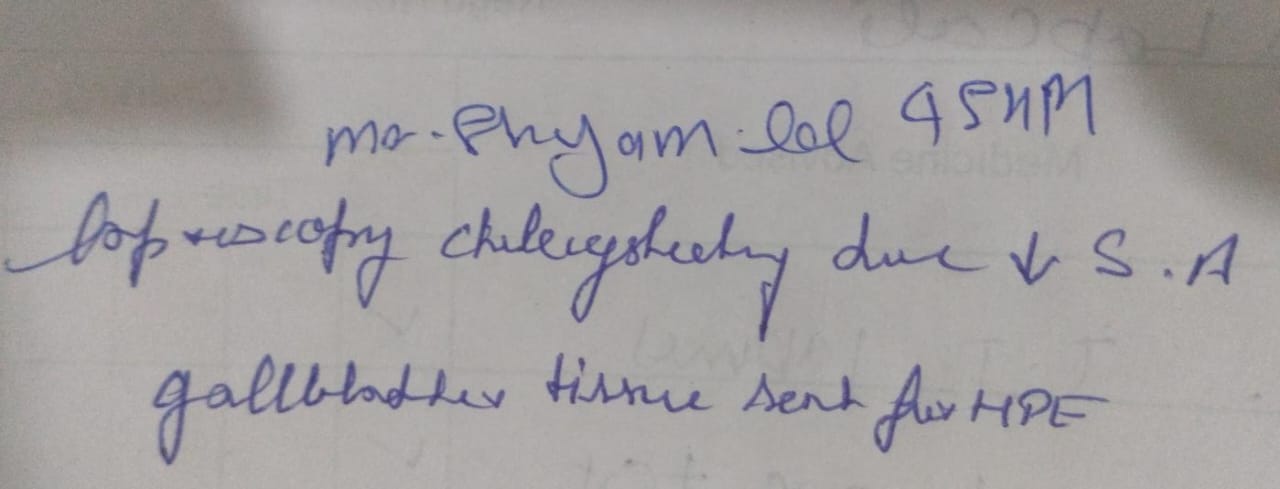 mr. Shyam lal 45Y/M
laproscopy cholecystectomy done ↓ S.A
gallbladder tissue sent for HPE